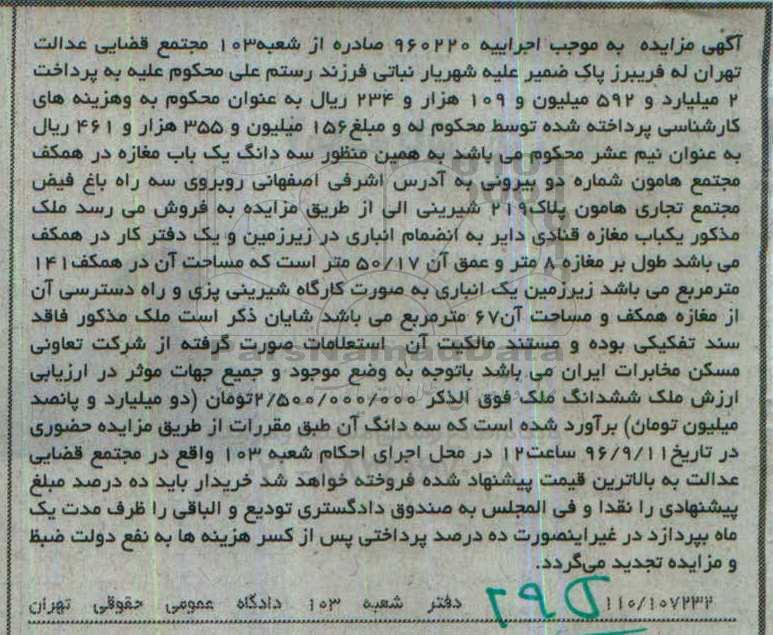 آگهی مزایده به موجب اجراییه ۹۶۰۲۲۰ صادره از شعبه۱۰۳ مجتمع قضایی عدالت
تهران له فریبرز پاک ضمیر علیه شهریار نباتی فرزند رستم علی محکوم علیه به پرداخت
۲ میلیارد و ۵۹۲ میلیون و ۱۰۹ هزار و ۲۳۴ ریال به عنوان محکوم به وهزینه های
کارشناسی پرداخته شده توسط محکوم له و مبلغ۱۵۶ میلیون و ۳۵۵ هزار و ۴۶۱ ریال
به عنوان نیم عشر محکوم می باشد به همین منظور سه دانگ یک باب مغازه در همکف
مجتمع هامون شماره دو بیرونی به آدرس اشرفی اصفهانی روبروی سه راه باغ فیض
مجتمع تجاری هامون پلاک۲۱۹ شیرینی الی از طریق مزایده به فروش می رسد ملک
مذکور یکباب مغازه قنادی دایر به انضمام انباری در زیرزمین و یک دفتر کار در همکف
می باشد طول بر مغازه ۸ متر و عمق آن ۵۰/۱۷ متر است که مساحت آن در همکف۱۴۱
مترمربع می باشد زیرزمین یک انباری به صورت کارگاه شیرینی پزی و راه دسترسی آن
از مغازه همکف و مساحت آن۶۷ مترمربع می باشد شایان ذکر است ملک مذکور فاقد
سند تفکیکی بوده و مستند مالکیت آن استعلامات صورت گرفته از شرکت تعاونی
مسکن مخابرات ایران می باشد باتوجه به وضع موجود و جمیع جهات موثر در ارزیابی
ارزش ملک ششدانگ ملک فوق الذکر ۲/۵۰۰/۰۰۰/۰۰۰تومان (دو میلیارد و پانصد
میلیون تومان) برآورد شده است که سه دانگ آن طبق مقررات از طریق مزایده حضوری
در تاریخ۹۶/۹/۱۱ ساعت۱۲ در محل اجرای احکام شعبه ۱۰۳ واقع در مجتمع قضایی
عدالت به بالاترین قیمت پیشنهاد شده فروخته خواهد شد خریدار باید ده درصد مبلغ
پیشنهادی را نقدا و فی المجلس به صندوق دادگستری تودیع و الباقی را ظرف مدت یک
ماه بپردازد در غیراینصورت ده درصد پرداختی پس از کسر هزینه ها به نفع دولت ضبط
و مزایده تجدید می‌گردد.
۱۱۰/۱۰۷۲۳۲ دفتر شعبه ۱۰۳ دادگاه عمومی حقوقی تهران
ParsNamadData